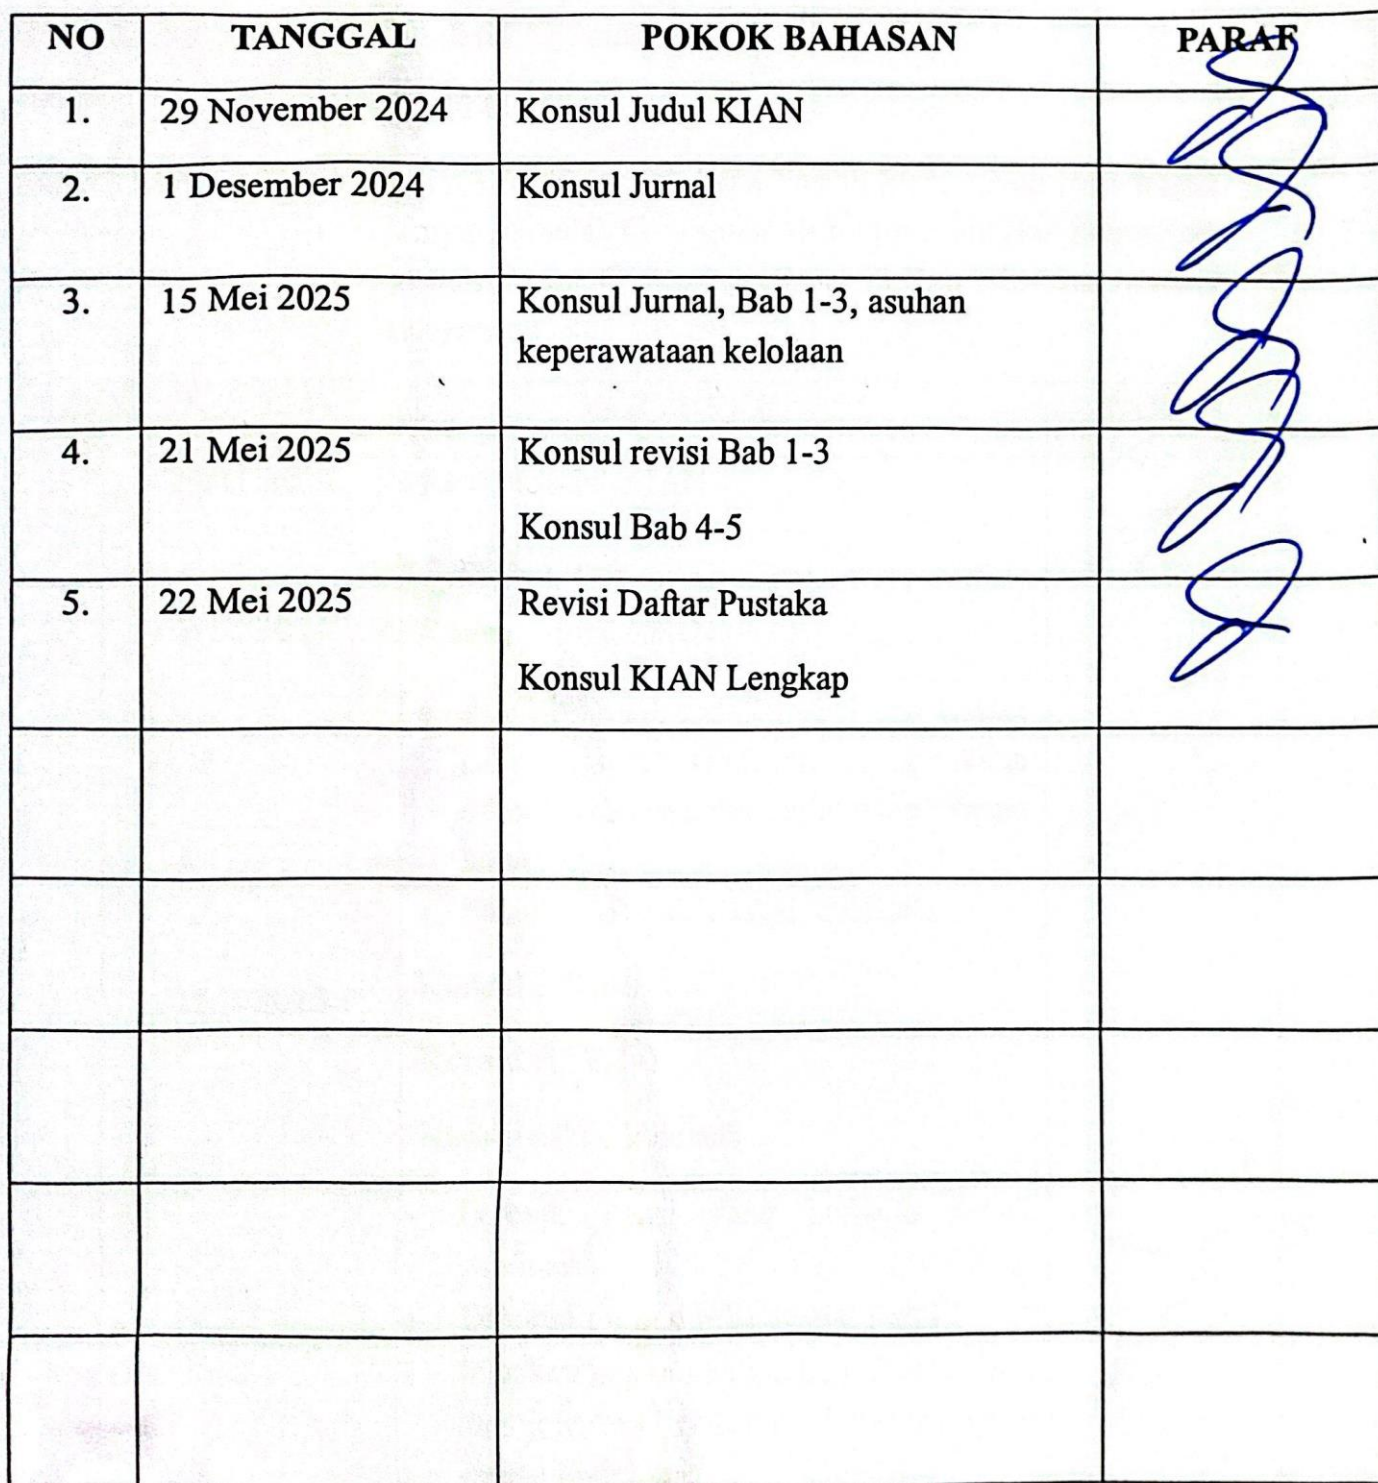 NO TANGGAL POKOK BAHASAN PARAF
1. 29 November 2024 Konsul Judul KIAN
2. 1 Desember 2024 Konsul Jurnal
3. 15 Mei 2025 Konsul Jurnal, Bab 1-3, asuhan
keperawataan kelolaan
4. 21 Mei 2025 Konsul revisi Bab 1-3
Konsul Bab 4-5
5. 22 Mei 2025 Revisi Daftar Pustaka
Konsul KIAN Lengkap